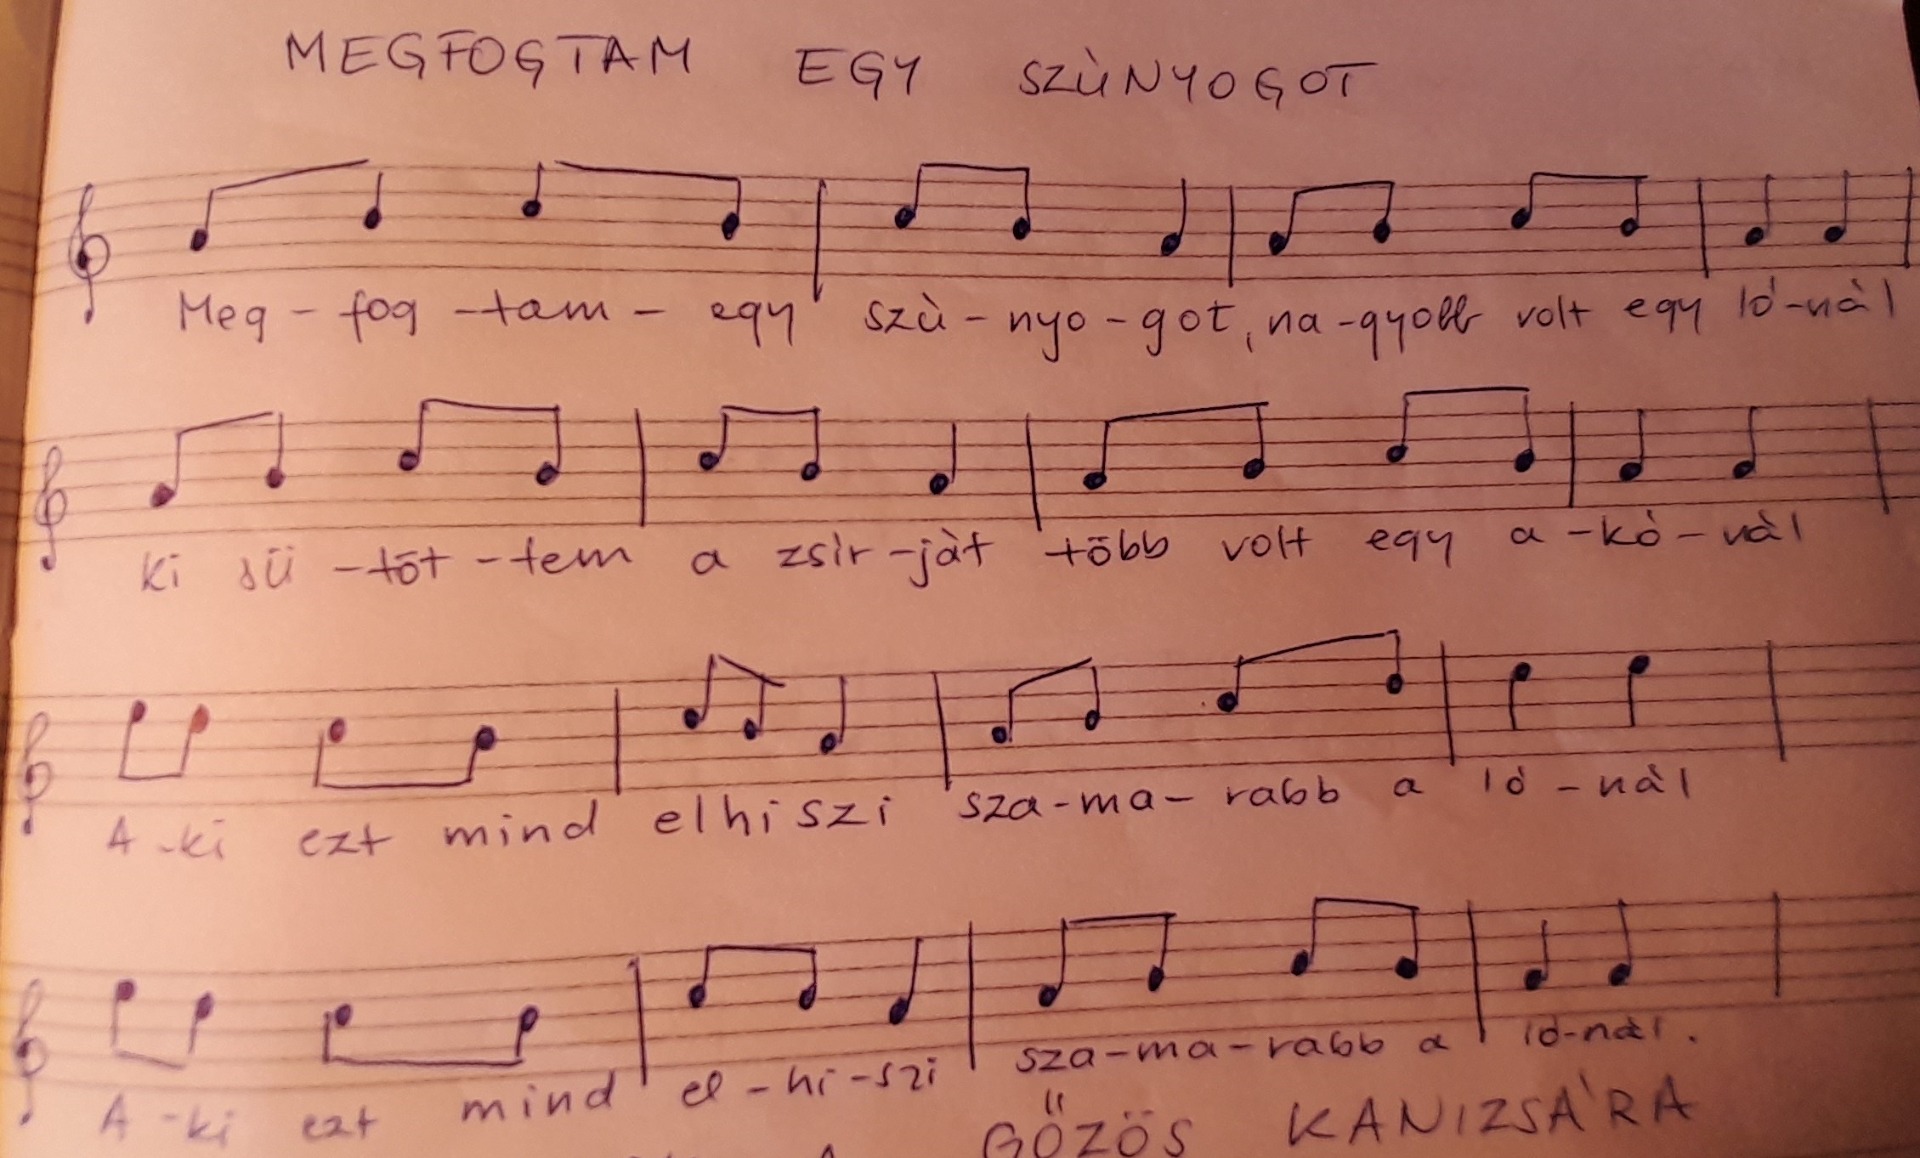 MEGFOGTAM EGY SZÙNYOGOT
Meg - fog - tam - egy szù - nyo - got, na - gyobb volt egy ló - nàl
Ki sü - töt - tem a zsìr - jàt több volt egy a - kò - nàl
A - ki ezt mind elhiszi sza - ma - rabb a lò - nàl
A - ki ezt mind el - hi - szi sza - ma - rabb a lò - nàl.
GŐZÖS KANIZSÁRA